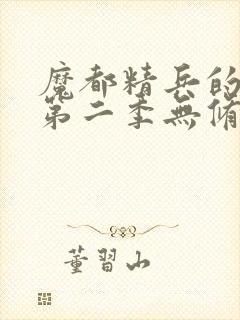 魔都精兵的
第二季無脩
董習山